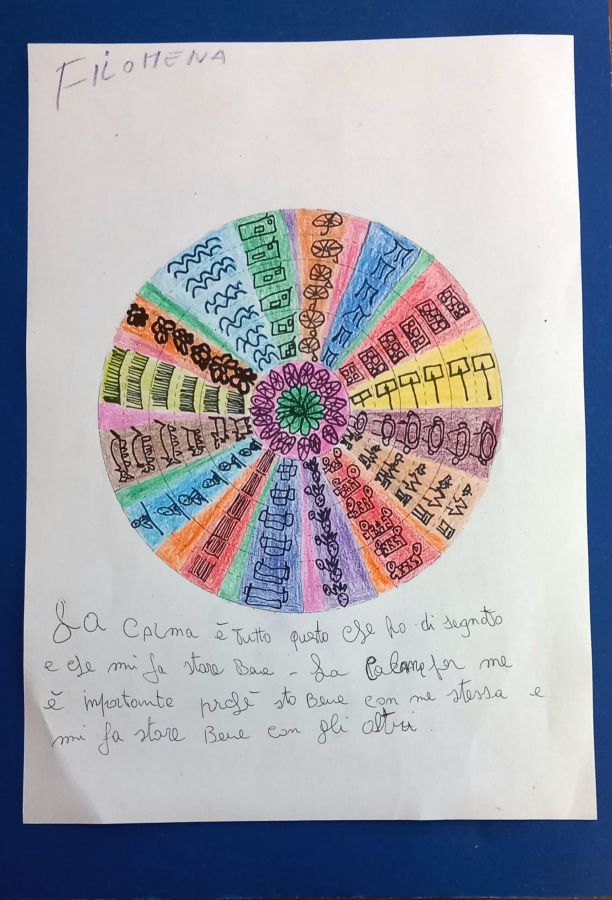 FILOMENA
LA CALMA è tutto questo che ho di segnato
e che mi fa stare Bene - La Calma per me
è importante perchè sto Bene con me stessa e
mi fa stare Bene con gli altri.